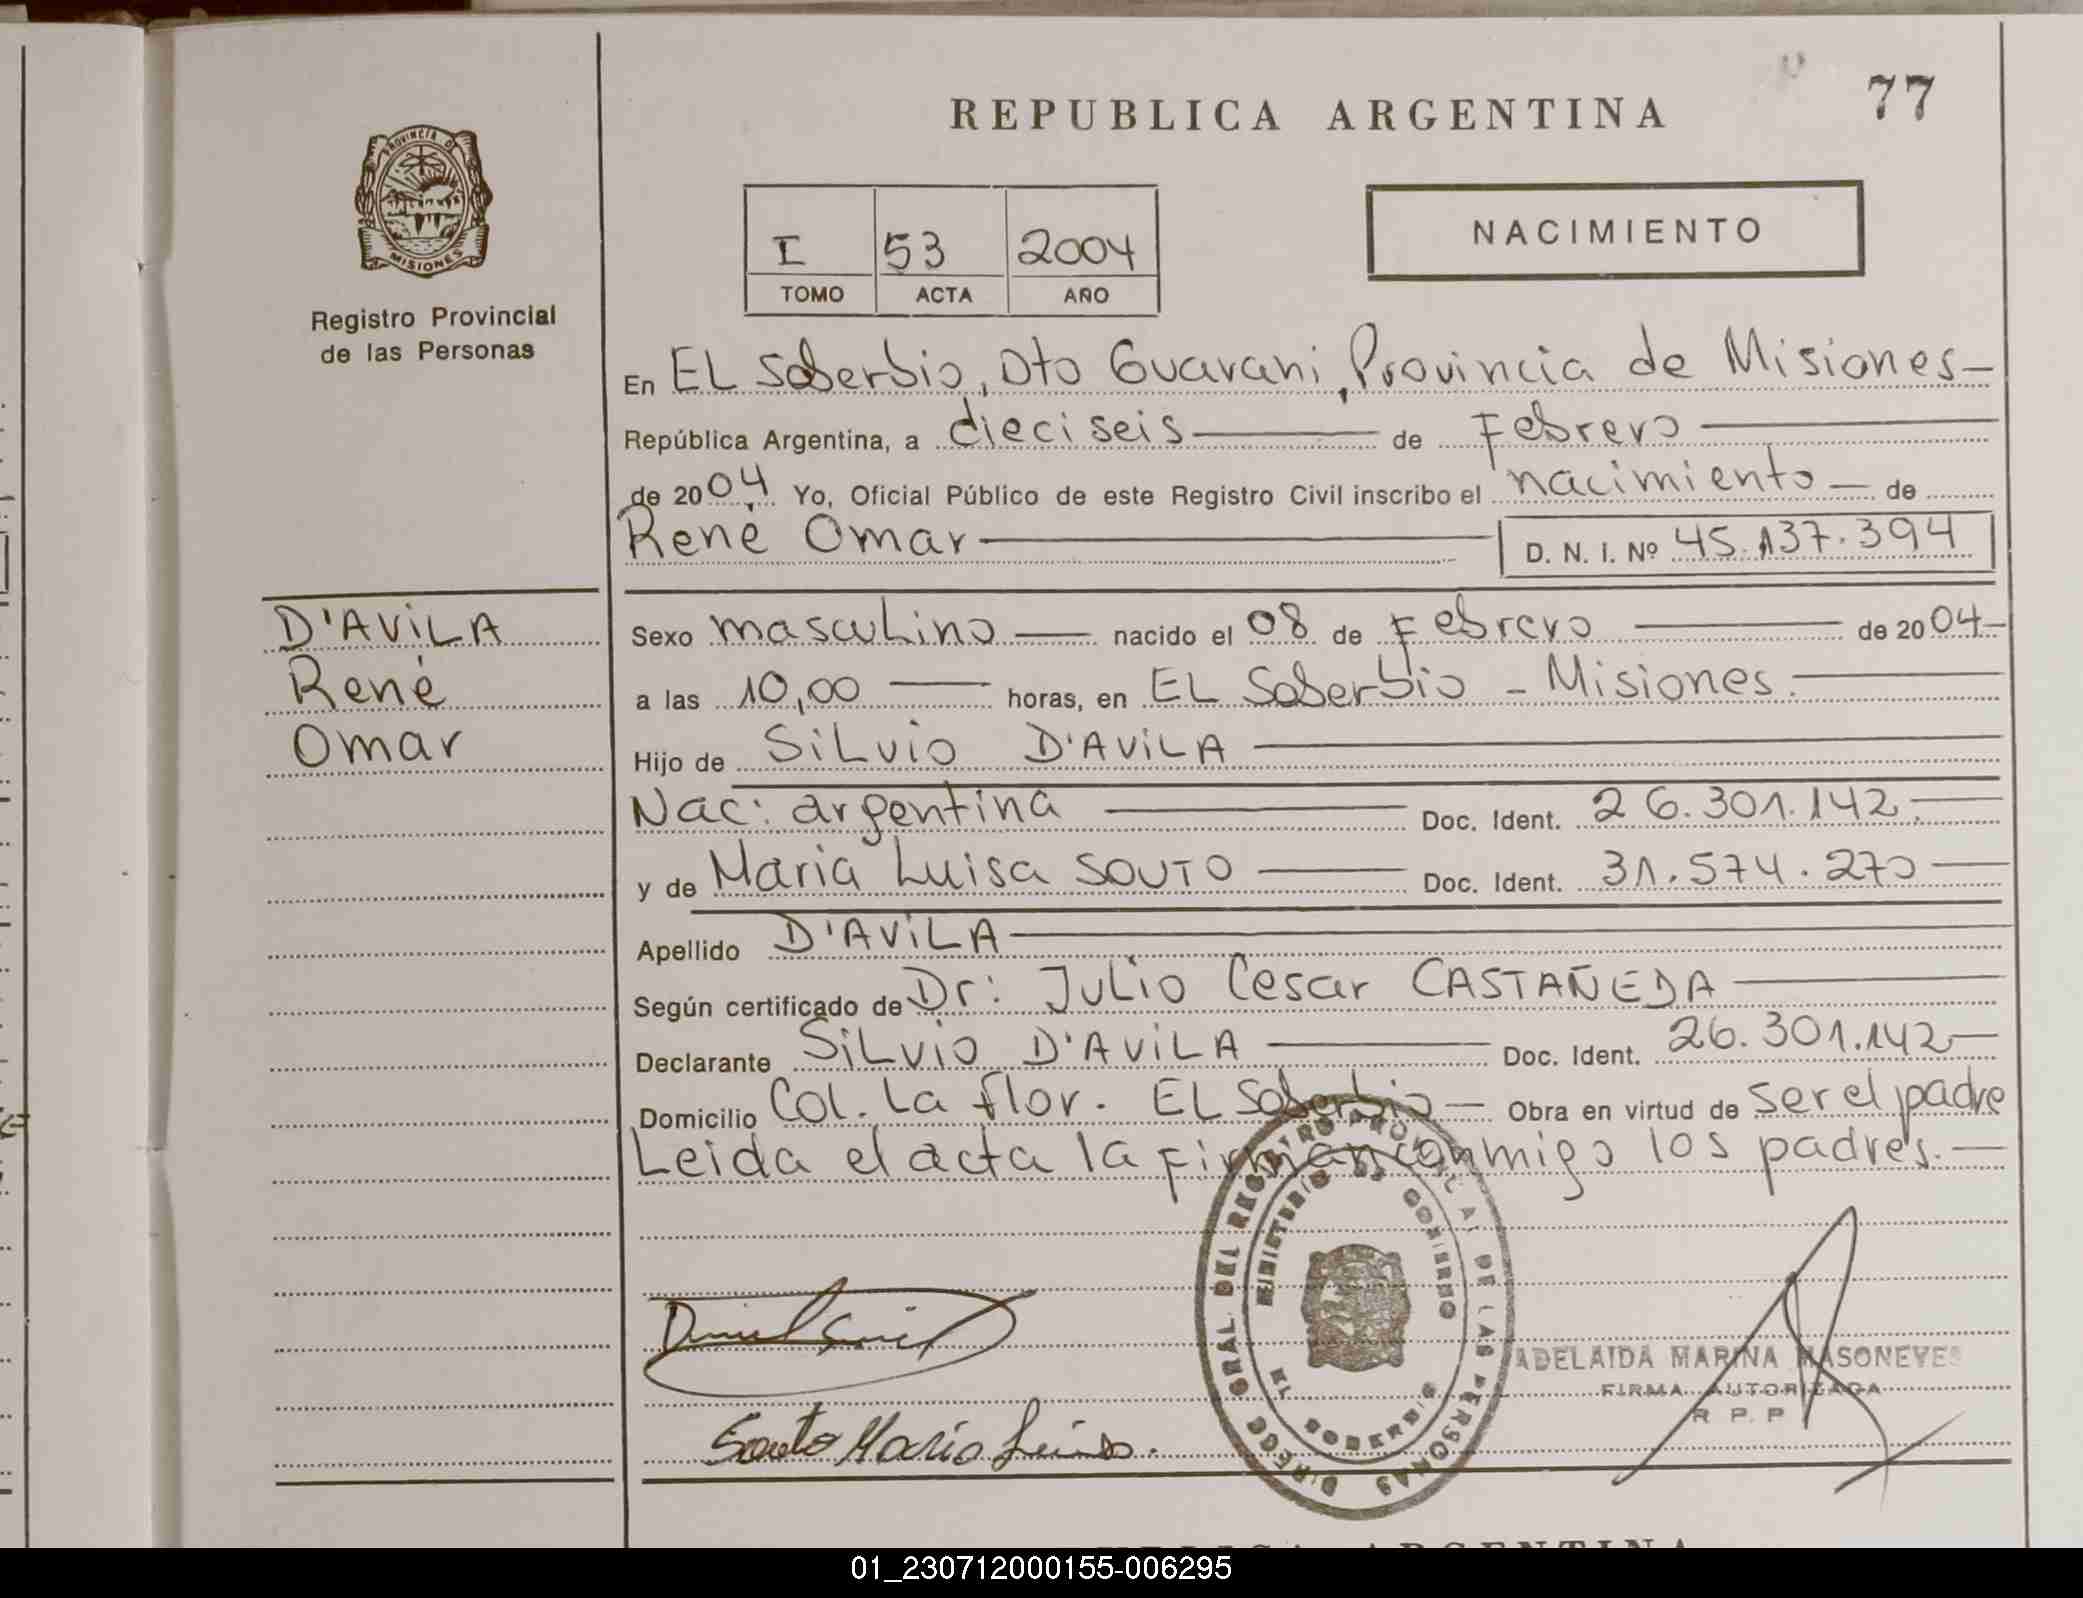 REPUBLICA ARGENTINA
77
PROVINCIA DE
MISIONES
Registro Provincial
de las Personas
I 53 2004
TOMO ACTA AÑO
NACIMIENTO
En EL Soberbio, Dto Guarani, Provincia de Misiones
República Argentina, a dieciseis de Febrero
de 2004 Yo, Oficial Público de este Registro Civil inscribo el nacimiento de
René Omar D. N. I. Nº 45.137.394
D'AVILA
René
Omar
Sexo masculino nacido el 08 de Febrero de 2004
a las 10,00 horas, en EL Soberbio - Misiones.
Hijo de SiLvio D'AViLA
Nac: argentina Doc. Ident. 26.301.142.
y de Maria Luisa SOUTO Doc. Ident. 31.574.270
Apellido D'AViLA
Según certificado de Dr: Julio Cesar CASTAÑEDA
Declarante SiLvio D'AViLA Doc. Ident. 26.301.142
Domicilio Col. La flor. EL Soberbio Obra en virtud de ser el padre
Leida el acta la firman conmigo los padres.
DIRECC. GRAL. DEL REGISTRO PROVINCIAL DE LAS PERSONAS
MINISTERIO DE GOBIERNO
EL SOBERBIO
ADELAIDA MARINA MASONEVES
FIRMA AUTORIZADA
R P. P
Souto Maria Luisa.
REPUBLICA ARGENTINA
01_230712000155-006295